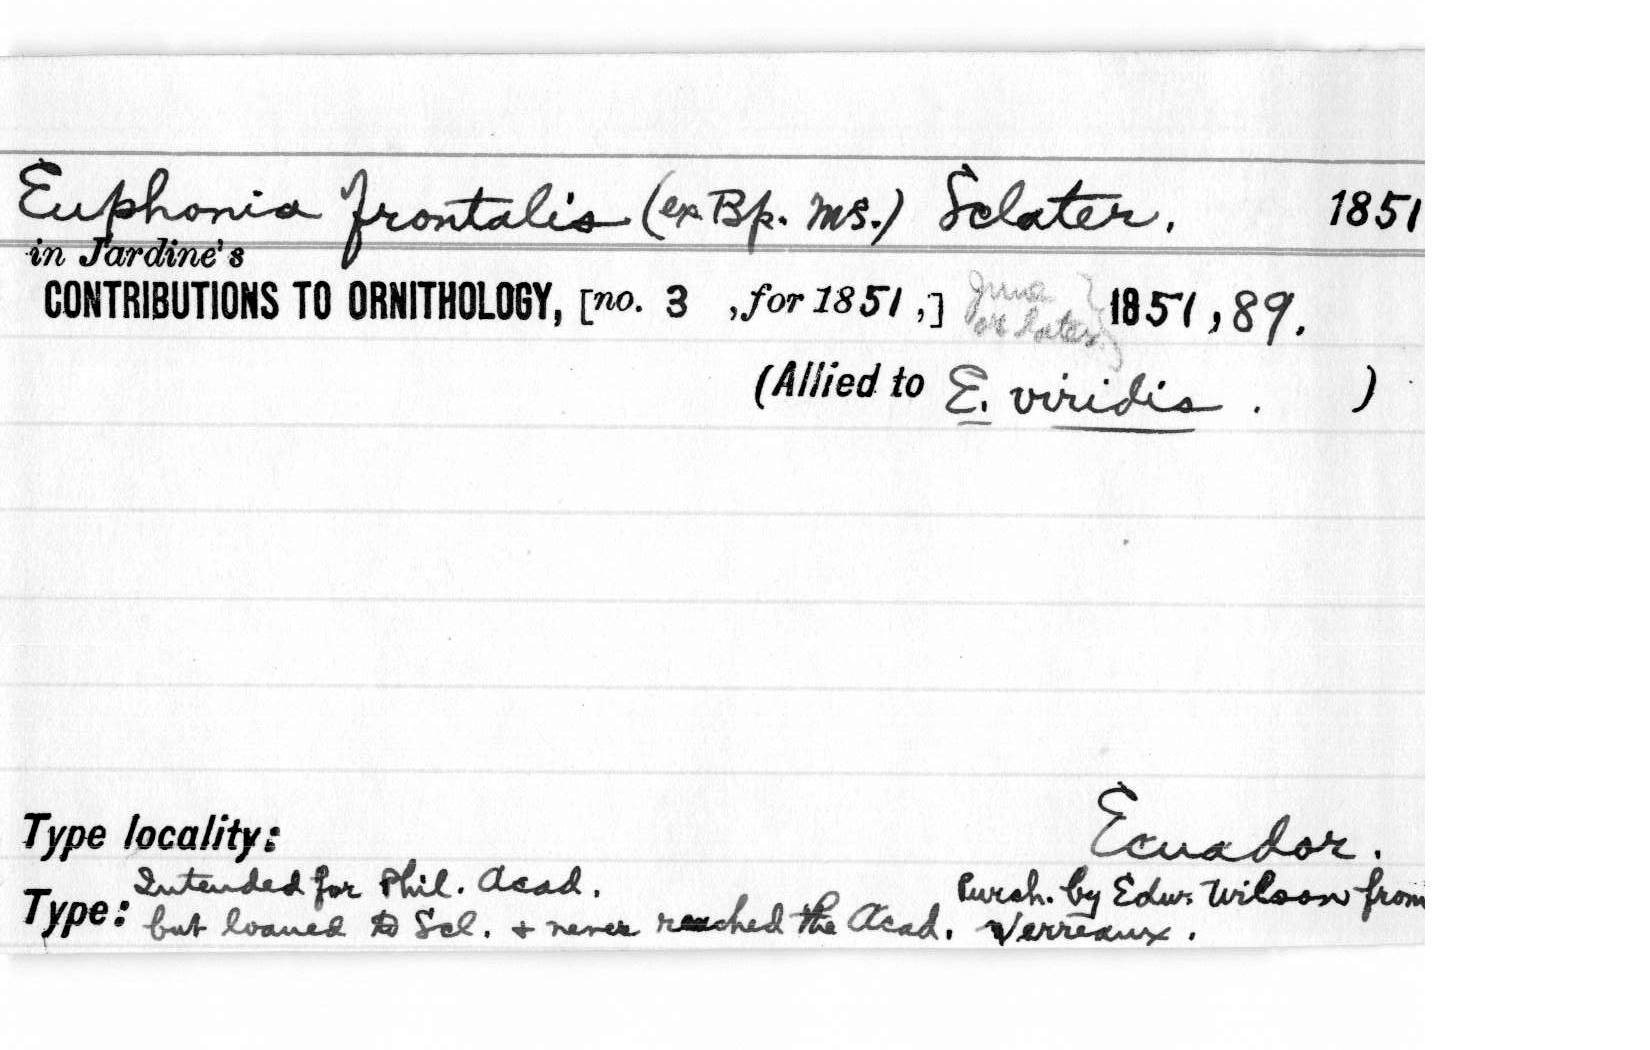 Euphonia frontalis (ex Bp. MS.) Sclater. 1851
in Jardine's
CONTRIBUTIONS TO ORNITHOLOGY, [no. 3 , for 1851 ,] June or later } 1851 , 89.
(Allied to E. viridis . )
Type locality: Ecuador.
Type: Intended for Phil. Acad. Purch. by Edw. Wilson from
but loaned to Scl. + never reached the Acad. Verreaux.